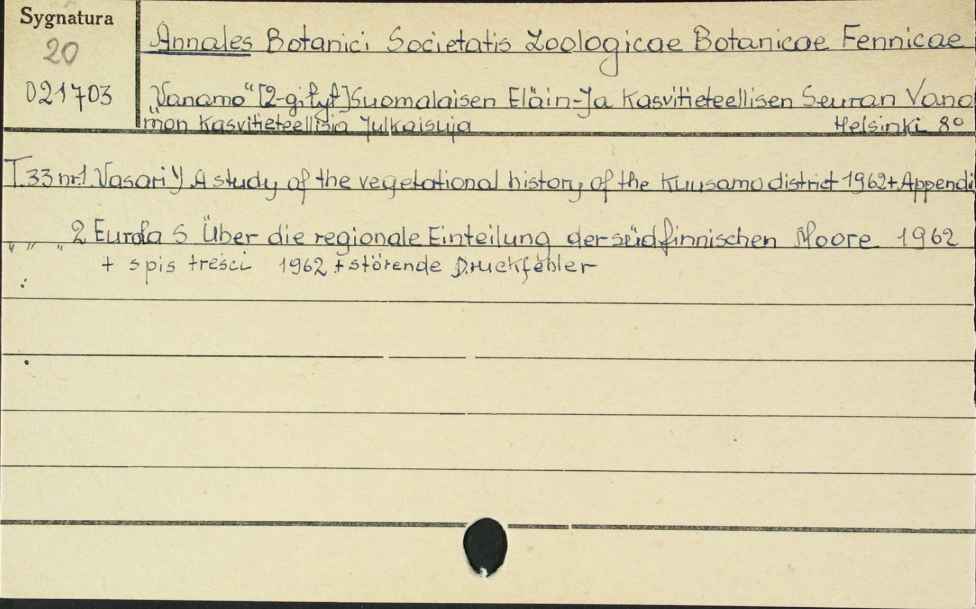 Sygnatura
20
021703
Annales Botanici Societatis Zoologicae Botanicae Fennicae
"Vanamo" [2-gi tyt] Suomalaisen Eläin-Ja Kasvitieteellisen Seuran Vana
mon Kasvitieteellisia Julkaisuja Helsinki 8°
T.33 nr1. Vasari Y A study of the vegetational history of the Kuusamo district 1962+Appendi
" " " 2 Eurola S Über die regionale Einteilung der südfinnischen Moore 1962
+ spis treści 1962 + störende Druckfehler